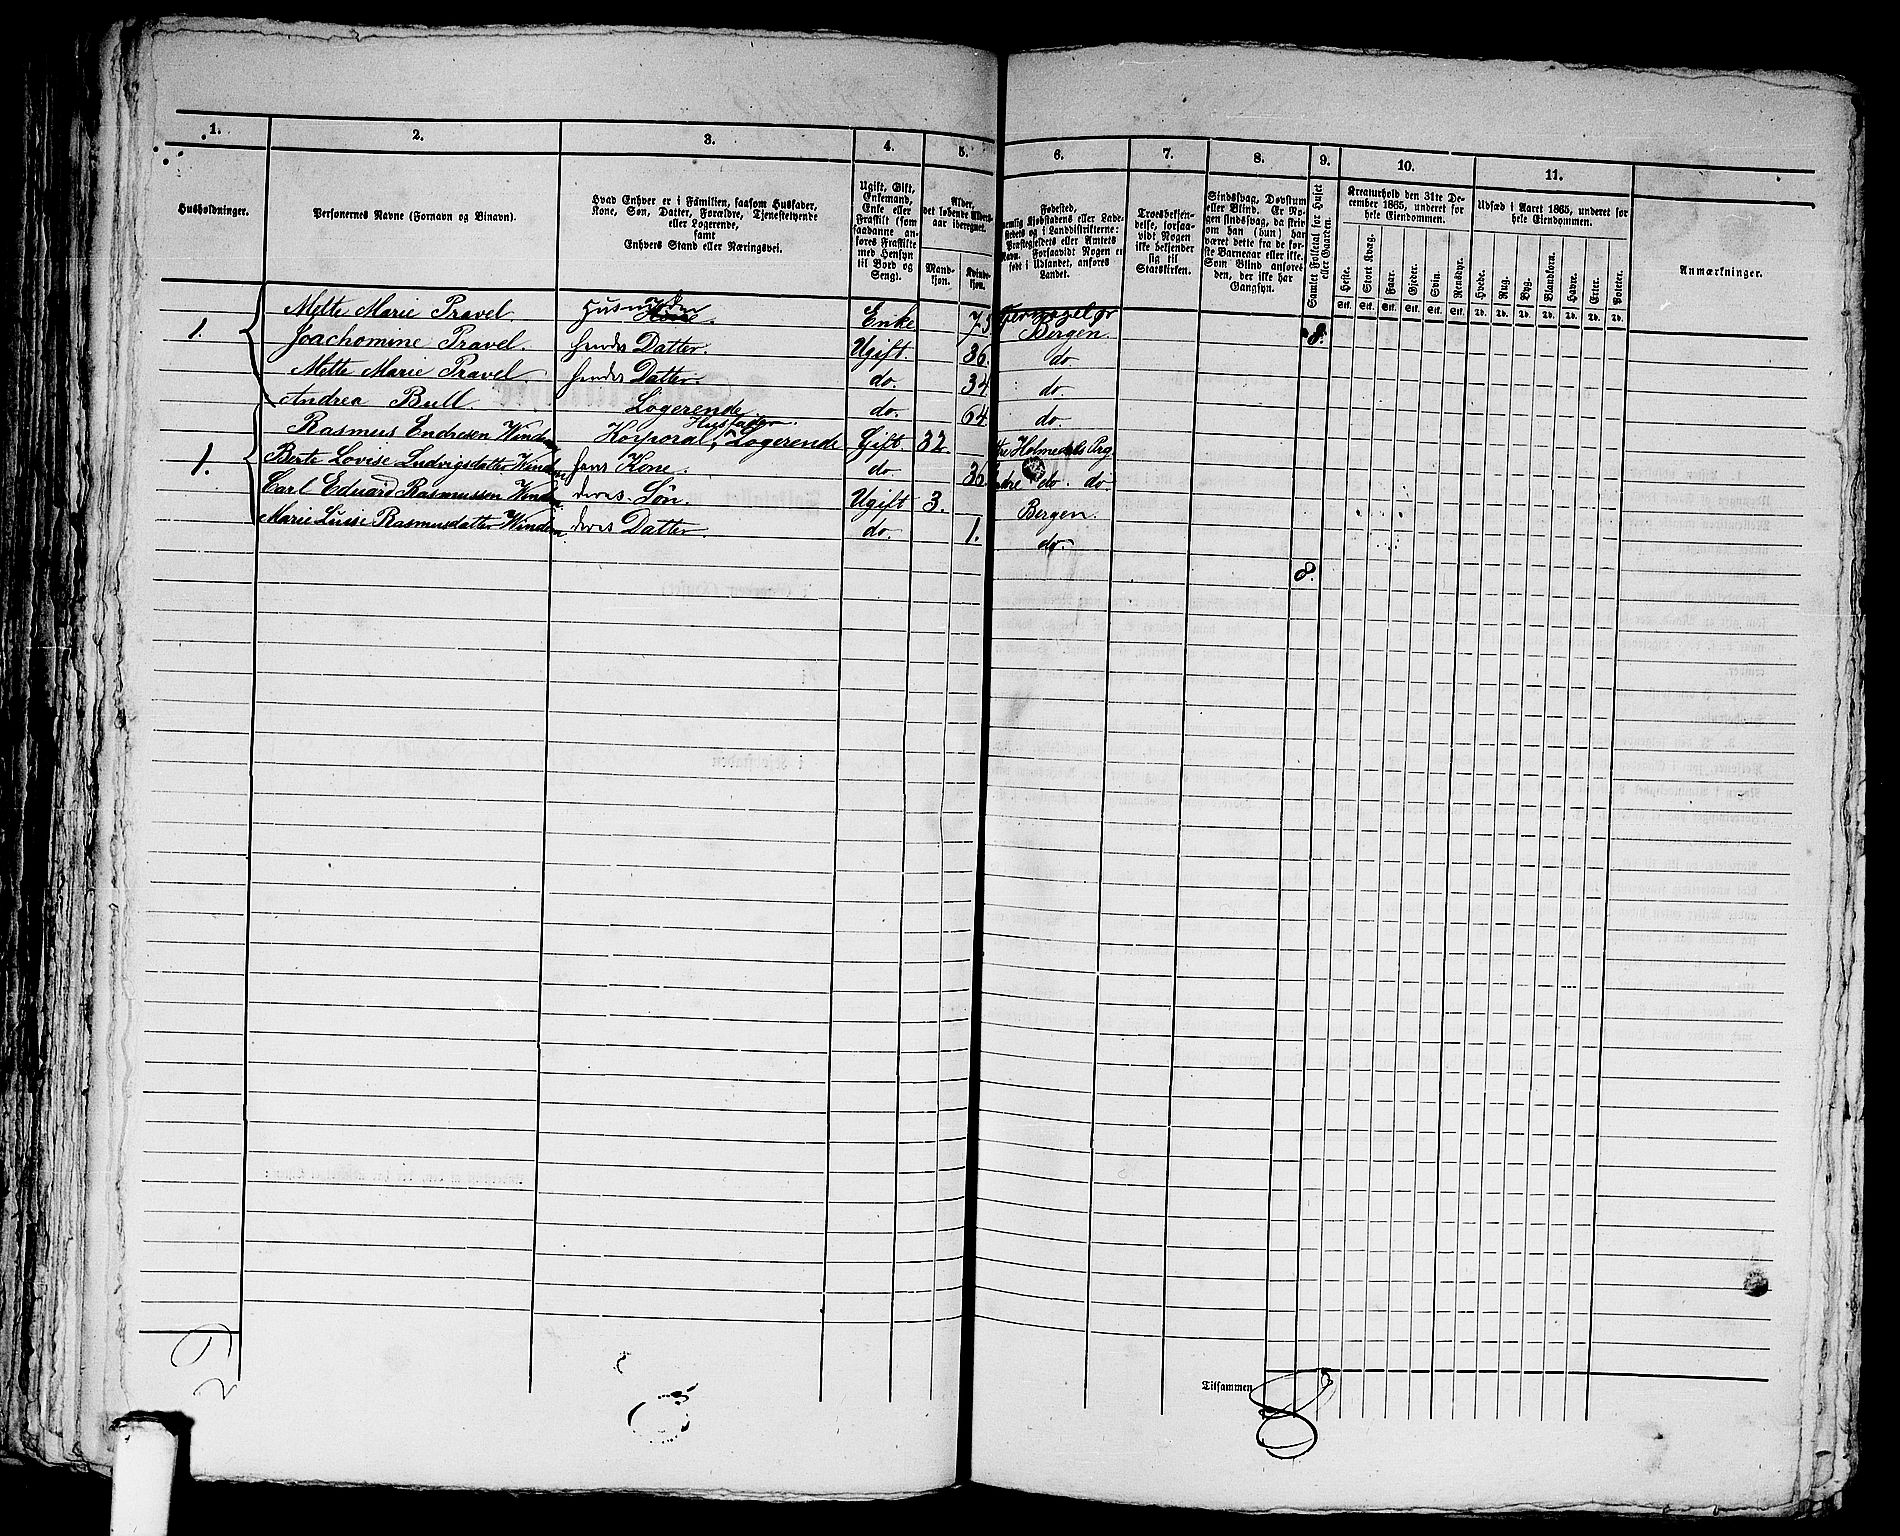 1. 2. 3. 4. 5. 6. 7. 8. 9. 10. 11.
Husholdninger.
Personernes Navne (Fornavn og Binavn).
Hvad Enhver er i Familien, saasom Husfader,
Kone, Søn, Datter, Forældre, Tjenestetyende
eller Logerende,
samt
Enhvers Stand eller Næringsvei.
Ugift, Gift,
Enkemand,
Enke eller
Fraskilt (som
saadanne an-
føres Fraskilte
med Hensyn
til Bord og
Seng).
Alder,
det løbende Alders-
aar iberegnet.
Mand-
kjøn.
Kvinde-
kjøn.
Fødested,
nemlig Kjøbstadens eller Lade-
stedets og i Landdistrikterne:
Præstegjeldets eller Amtets
Navn. Forsaavidt Nogen er
født i Udlandet, anføres
Landet.
Troesbekjen-
delse, forsaa-
vidt Nogen
ikke bekjender
sig til
Statskirken.
Sindssvag, Døvstum
eller Blind. Er No-
gen sindssvag, da skri-
ves om han (hun) har
været dette fra de før-
ste Barneaar eller ikke.
Som Blind anføres
den, der ikke har
Gangsyn.
Samlet Folketal for Huset
eller Gaarden.
Kreaturhold den 31te De-
cember 1865, underet for
hele Eiendommen.
Heste. Stort Kvæg. Faar. Gjeder. Svin. Rensdyr.
Stk. Stk. Stk. Stk. Stk. Stk.
Udsæd i Aaret 1865, underet for
hele Eiendommen.
Hvede. Rug. Byg. Blandkorn. Havre. Erter. Poteter.
Td. Td. Td. Td. Td. Td. Td.
Anmærkninger.
Mette Marie Pravel. Enke 75 Bergen.
1. Joachomine Pravel. hendes Datter. Ugift. 36. do 8.
Mette Marie Pravel hendes Datter. do. 34 do
Andrea Bull. Logerende do. 64 do
Husfader
Rasmus Endresen Winden Korporal, Logerende Gift. 32 Holmedals Prg
1. Berte Lovise Ludvigsdatter Winden hans Kone. do 36 do do
Carl Eduard Rasmussen Winden deres Søn. Ugift 3. Bergen.
Marie Luise Rasmusdatter Winden deres Datter. do. 1. do.
8.
2
Tilsammen 8